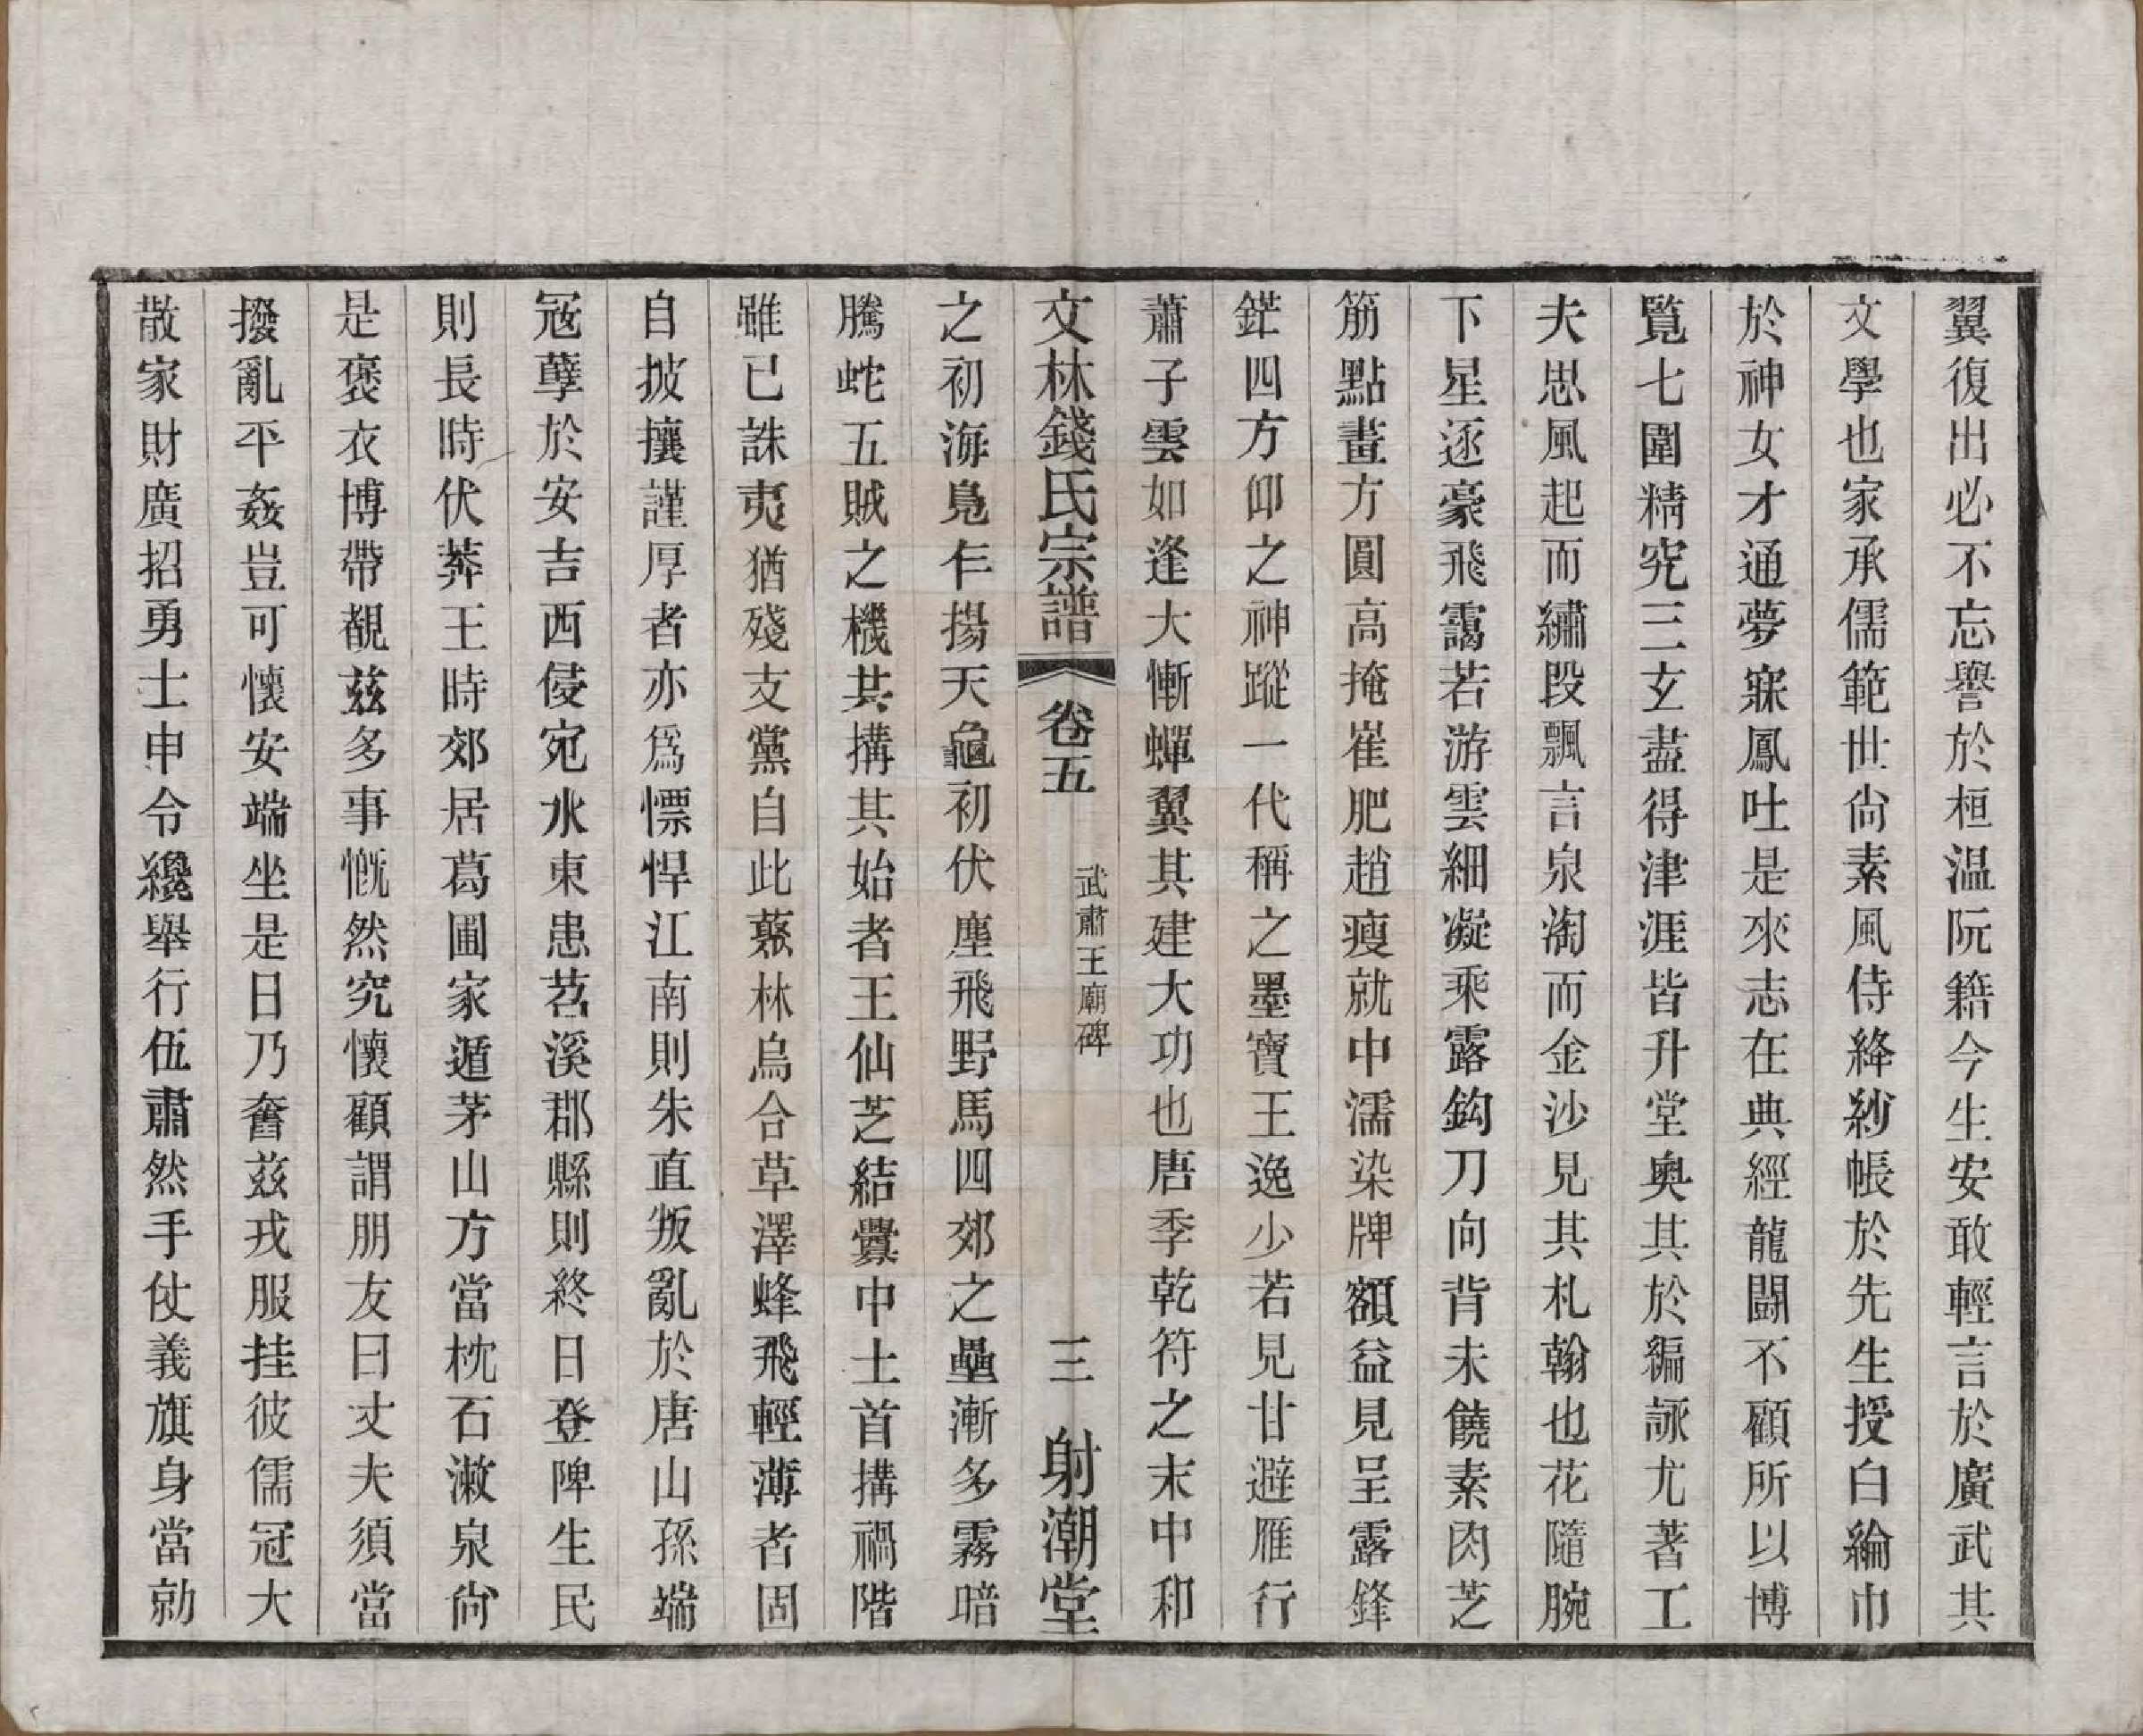 翼復出必不忘譽於桓温阮籍今生安敢輕言於廣武其
文學也家承儒範世尙素風侍絳紗帳於先生授白綸巾
於神女才通夢寐鳳吐是來志在典經龍鬬不顧所以博
覧七圍精究三玄盡得津涯皆升堂奥其於編詠尤著工
夫思風起而繡段飄言泉淘而金沙見其札翰也花隨腕
下星逐豪飛靄若游雲細凝乘露鈎刀向背未饒素肉芝
筋點畫方圓高掩崔肥趙瘦就中濡染牌額益見呈露鋒
鋩四方仰之神蹤一代稱之墨寶王逸少若見甘避雁行
蕭子雲如逢大慚蟬翼其建大功也唐季乾符之末中和
文林錢氏宗譜 卷五 武肅王廟碑 三 射潮堂
之初海鳧乍揚天龜初伏塵飛野馬四郊之壘漸多霧暗
騰蛇五賊之機其搆其始者王仙芝結釁中土首搆禍階
雖已誅夷猶殘支黨自此藂林烏合草澤蜂飛輕薄者固
自披攘謹厚者亦爲慓悍江南則朱直叛亂於唐山孫端
寇孽於安吉西侵宛水東患苕溪郡縣則終日登陴生民
則長時伏莽王時郊居葛圃家遁茅山方當枕石漱泉尙
是褒衣博帶覩兹多事慨然究懷顧謂朋友曰丈夫須當
撥亂平姦豈可懷安端坐是日乃奮兹戎服挂彼儒冠大
散家財廣招勇士申令纔舉行伍肅然手仗義旗身當勍